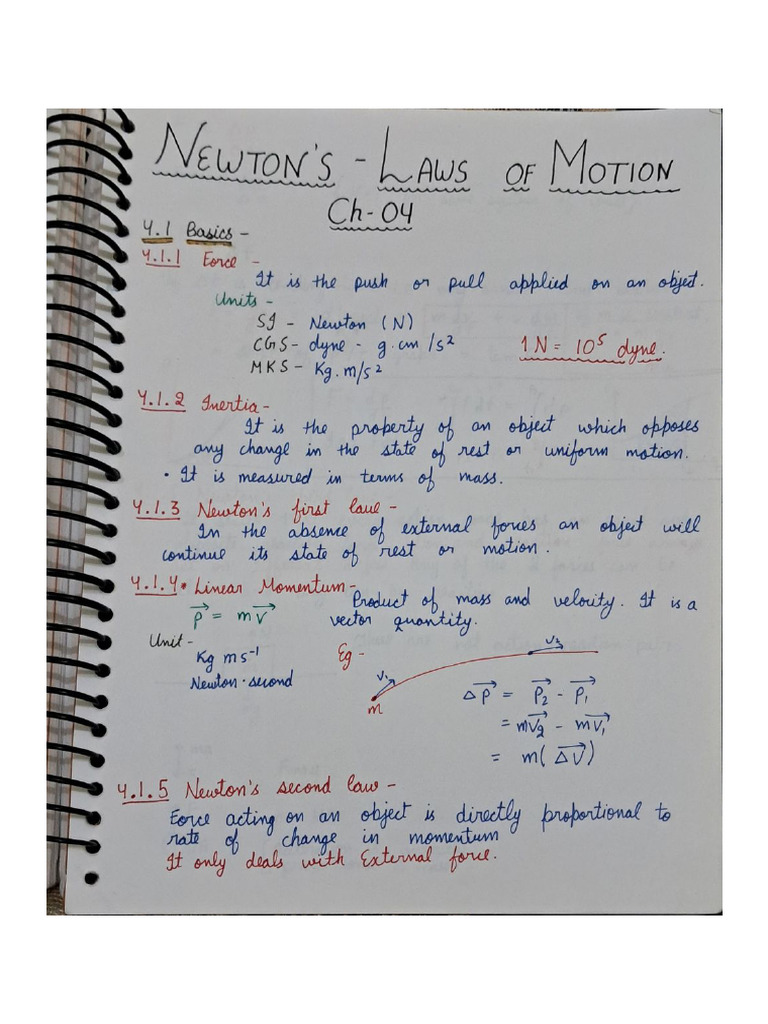 NEWTON'S - LAWS OF MOTION
Ch-04
4.1 Basics -
4.1.1 Force -
It is the push or pull applied on an object.
Units -
SI - Newton (N)
CGS - dyne - g.cm/s²
1 N = 10⁵ dyne.
MKS - Kg.m/s²
4.1.2 Inertia -
It is the property of an object which opposes
any change in the state of rest or uniform motion.
• It is measured in terms of mass.
4.1.3 Newton's first law -
In the absence of external forces an object will
continue its state of rest or motion.
4.1.4 • Linear Momentum -
Product of mass and velocity. It is a
vector quantity.
p⃗ = mv⃗
Unit -
Kg ms⁻¹
Newton.second
Eg -
V₁
V₂
m
Δp⃗ = p⃗₂ - p⃗₁
= mv⃗₂ - mv⃗₁
= m(Δv⃗)
4.1.5 Newton's second law -
Force acting on an object is directly proportional to
rate of change in momentum
It only deals with External force.